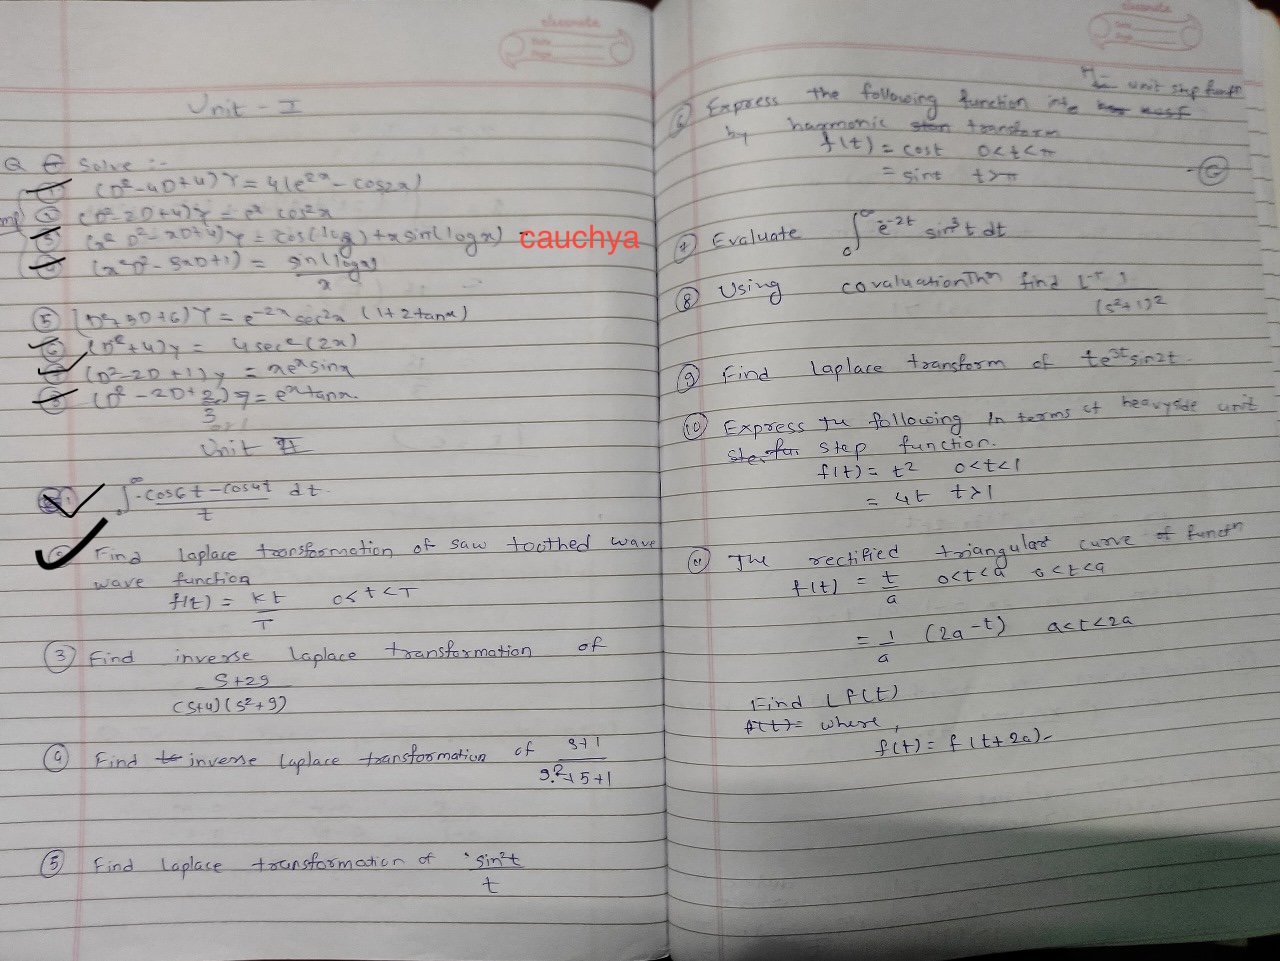 classmate
Date
Page
Unit - I
Q Solve :-
① (D²-4D+4)Y = 4(e²ˣ - cos2x)
② (D²-2D+4)y = eˣ cos²x
③ (x²D²-xD+4)y = cos(log x) + x sin(log x) cauchya
④ (x²D²-3xD+1) = sin(log x)/x
⑤ (D²+5D+6)Y = e⁻²ˣ sec²x (1+2tanx)
⑥ (D²+4)y = 4sec²(2x)
⑦ (D²-2D+1)y = xeˣsinx
⑧ (D²-2D+2)y = eˣtanx
3
Unit II
∫₀^∞ cos6t-cos4t/t dt.
Find laplace transformation of saw toothed wave
wave function
f(t) = Kt/T 0<t<T
③ Find inverse laplace transformation of
S+29/(S+4)(S²+9)
④ Find inverse laplace transformation of S+1/S²+S+1
⑤ Find laplace transformation of sin²t/t
classmate
Date
Page
unit step functn
⑥ Express the following function into
by harmonic transform
f(t) = cost 0<t<π
= sint t>π
⑦ Evaluate ∫₀^∞ e⁻²ᵗ sin³t dt
⑧ Using covaluation Thm find L⁻¹ 1/(s²+1)²
⑨ Find laplace transform of te³ᵗsin2t.
⑩ Express the following in terms of heavyside unit
step function.
f(t) = t² 0<t<1
= 4t t>1
⑪ The rectified triangular curve of functn
f(t) = t/a 0<t<a 0<t<a
= 1/a (2a-t) a<t<2a
Find L f(t)
f(t)= where,
f(t) = f(t+2a)